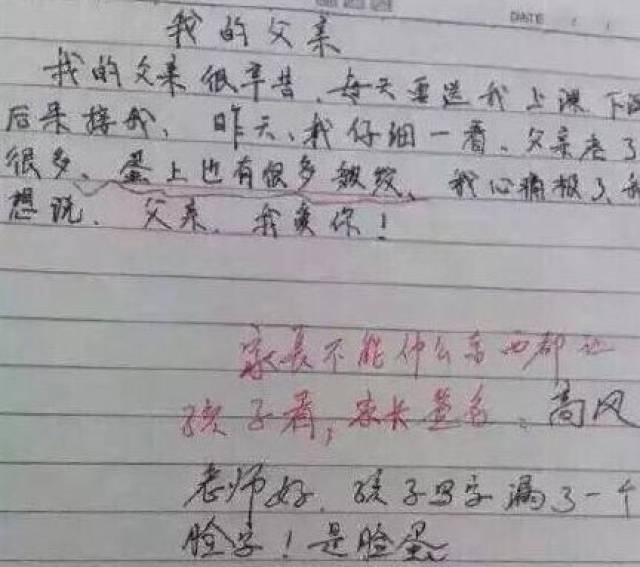 DATE
我的父亲
我的父亲很辛苦、每天要送我上课、下课
后来接我、昨天、我仔细一看、父亲老了
很多、蛋上也有很多皱纹、我心痛极了、我
想说、父亲、我爱你！
家长不能什么东西都让
孩子看，家长签名。高风
老师好、孩子写字漏了一个
脸字！是脸蛋